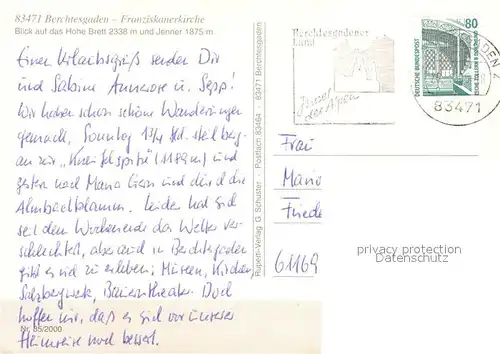 83471 Berchtesgaden – Franziskanerkirche
Blick auf das Hohe Brett 2338 m und Jenner 1875 m
Einen Urlaubsgruß senden Dir
und Sabine Annerose u. Sepp!
Wir haben schon schöne Wanderungen
gemacht, Sonntag 1 3/4 Std. steil berg-
an zur „Kneifelspitze" (1189 m) und
gestern nach Maria Gern und durch die
Almbachklamm. Leider hat sich
seit dem Wochenende das Wetter ver-
schlechtert, aber auch in Berchtesgaden
gibt es viel zu erleben: Museen, Kirchen,
Salzbergwerk, Bauerntheater. Doch
hoffen wir, daß es sich vor unserer
Heimreise noch bessert.
Nr. 85/2000
Rupert-Verlag G. Schuster · Postfach 83464 · 83471 Berchtesgaden
Berchtesgadener
Land
der Alpen
80
DEUTSCHE BUNDESPOST
ZECHE ZOLLERN II DORTMUND
DEN
83471
Frau
Mario
Friede
61169
privacy protection
Datenschutz